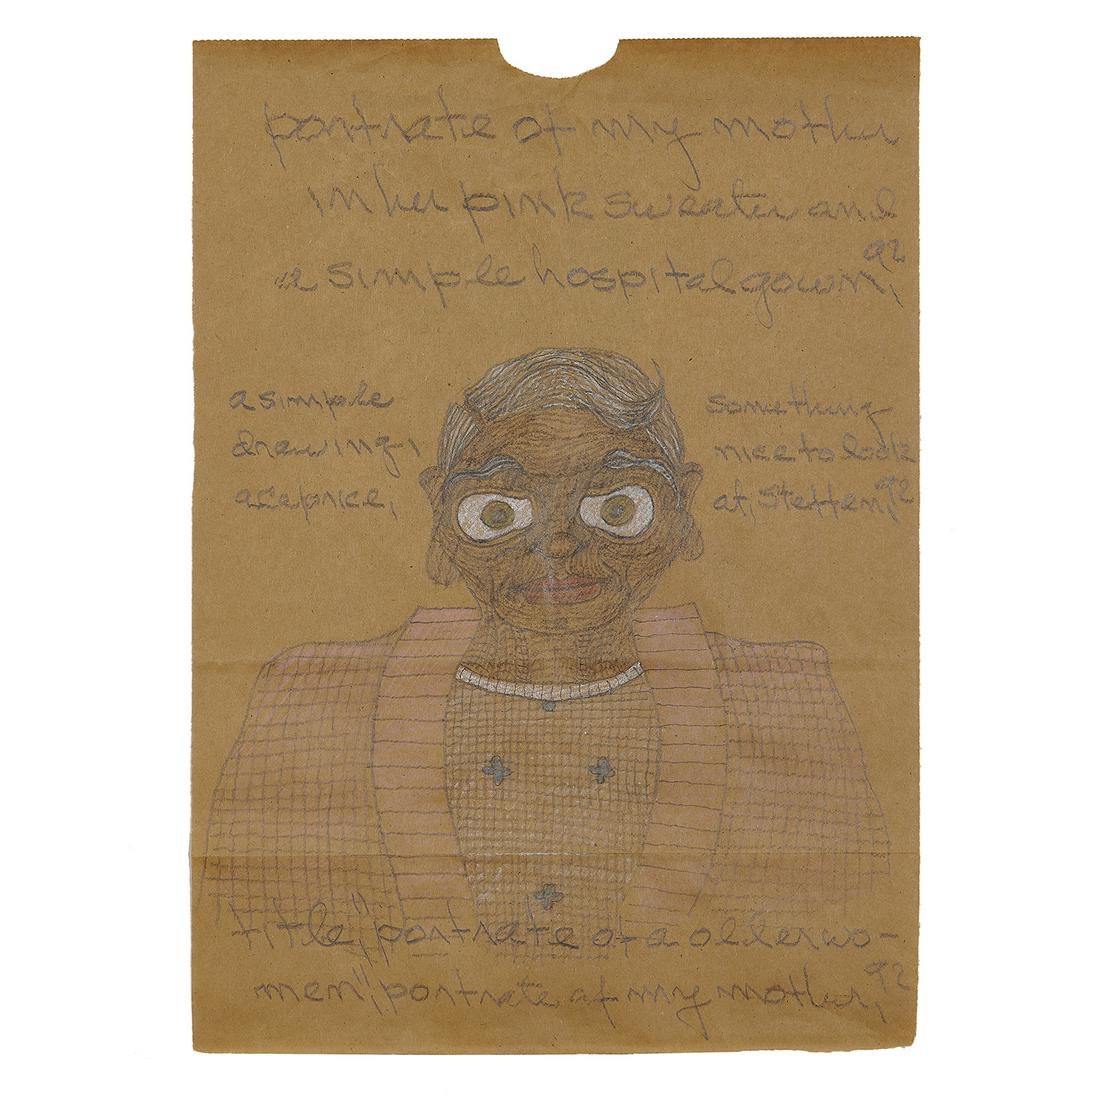 portrate of my mother
in her pink sweater and
a simple hospital gown, 92
a simple
drawing,
a ceprice,
something
nice to look
at, Stetten, 92
title, "portrate of a older wo-
men", "portrate of my mother, 92